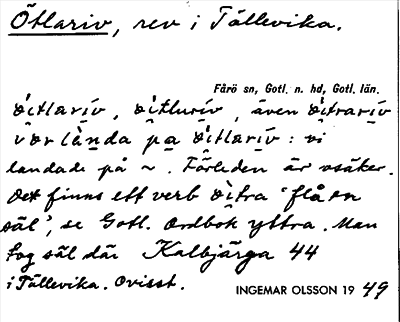 Ötlariv, rev i Tällevika.
Fårö sn, Gotl. n. hd, Gotl. län.
ò̂ıtları̄v, ò̂ıtlurı̄v, även ò̂ıtrarı̄v
vọr lànda pạ ò̂ıtları̄v: vi
landade på ~. Förleden är osäker.
Det finns ett verb òıtra 'flå en
säl', se Gotl. ordbok yttra. Man
tog säl där Kalbjärga 44
i Tällevika. Ovisst.
INGEMAR OLSSON 19 49